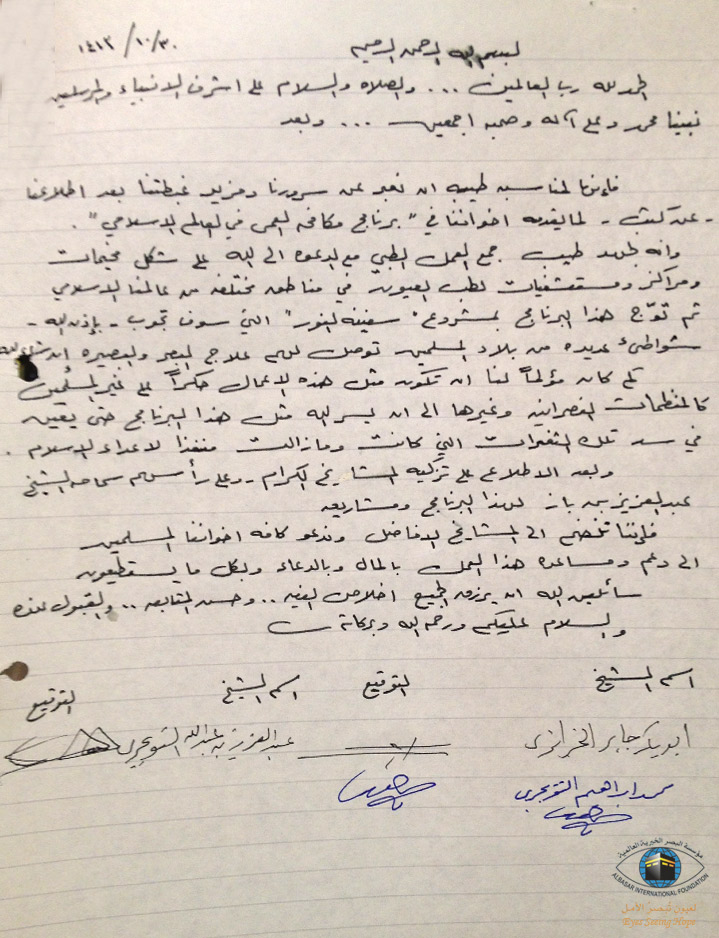 بسم الله الرحمن الرحيم
١٤١٣/١٠/٣٠
الحمد لله رب العالمين ... والصلاه والسلام على اشرف الانبياء والمرسلين
نبينا محمد وعلى آله وصحبه اجمعين ... وبعد
فإنها لمناسبه طيبه ان نعبر عن سرورنا ومزيد غبطتنا بعد اطلاعنا
- عن كثب - لما يقدمه اخواننا في "برنامج مكافحه العمى في العالم الاسلامي".
وانه لجهد طيب جمع العمل الطبي مع الدعوه الى الله على شكل مخيمات
ومراكز ومستشفيات لطب العيون في مناطق مختلفه من عالمنا الاسلامي
ثم توّج هذا البرنامج بمشروع "سفينه النور" التي سوف تجوب - بإذن الله -
شواطئ عديده من بلاد المسلمين توصل لهم علاج البصر والبصيره إن شاء الله
كم كان مؤلماً لنا ان تكون مثل هذه الاعمال حكراً على غير المسلمين
كالمنظمات النصرانيه وغيرها الى ان يسر الله مثل هذا البرنامج حتى يعين
في سد تلك الثغرات التي كانت ومازالت منفذا لاعداء الاسلام.
وبعد الاطلاع على تزكيه المشايخ الكرام - وعلى رأسهم سماحه الشيخ
عبدالعزيز بن باز لهذا البرنامج ومشاريعه
فإننا ننضم الى المشايخ الافاضل وندعو كافه اخواننا المسلمين
الى دعم ومساعده هذا العمل بالمال وبالدعاء وبكل ما يستطيعون
سائلين الله ان يرزق الجميع اخلاص النيه .. وحسن المتابعه .. والقبول عنده
والسلام عليكم ورحمه الله وبركاته
اسم الشيخ التوقيع اسم الشيخ التوقيع
ابوبكر جابر الجزائري عبدالعزيز بن عبدالله التويجري
محمد ابراهيم التويجري
مؤسسة البصر الخيرية العالمية
ALBASAR INTERNATIONAL FOUNDATION
لعيون تبصر الأمل
Eyes Seeing Hope